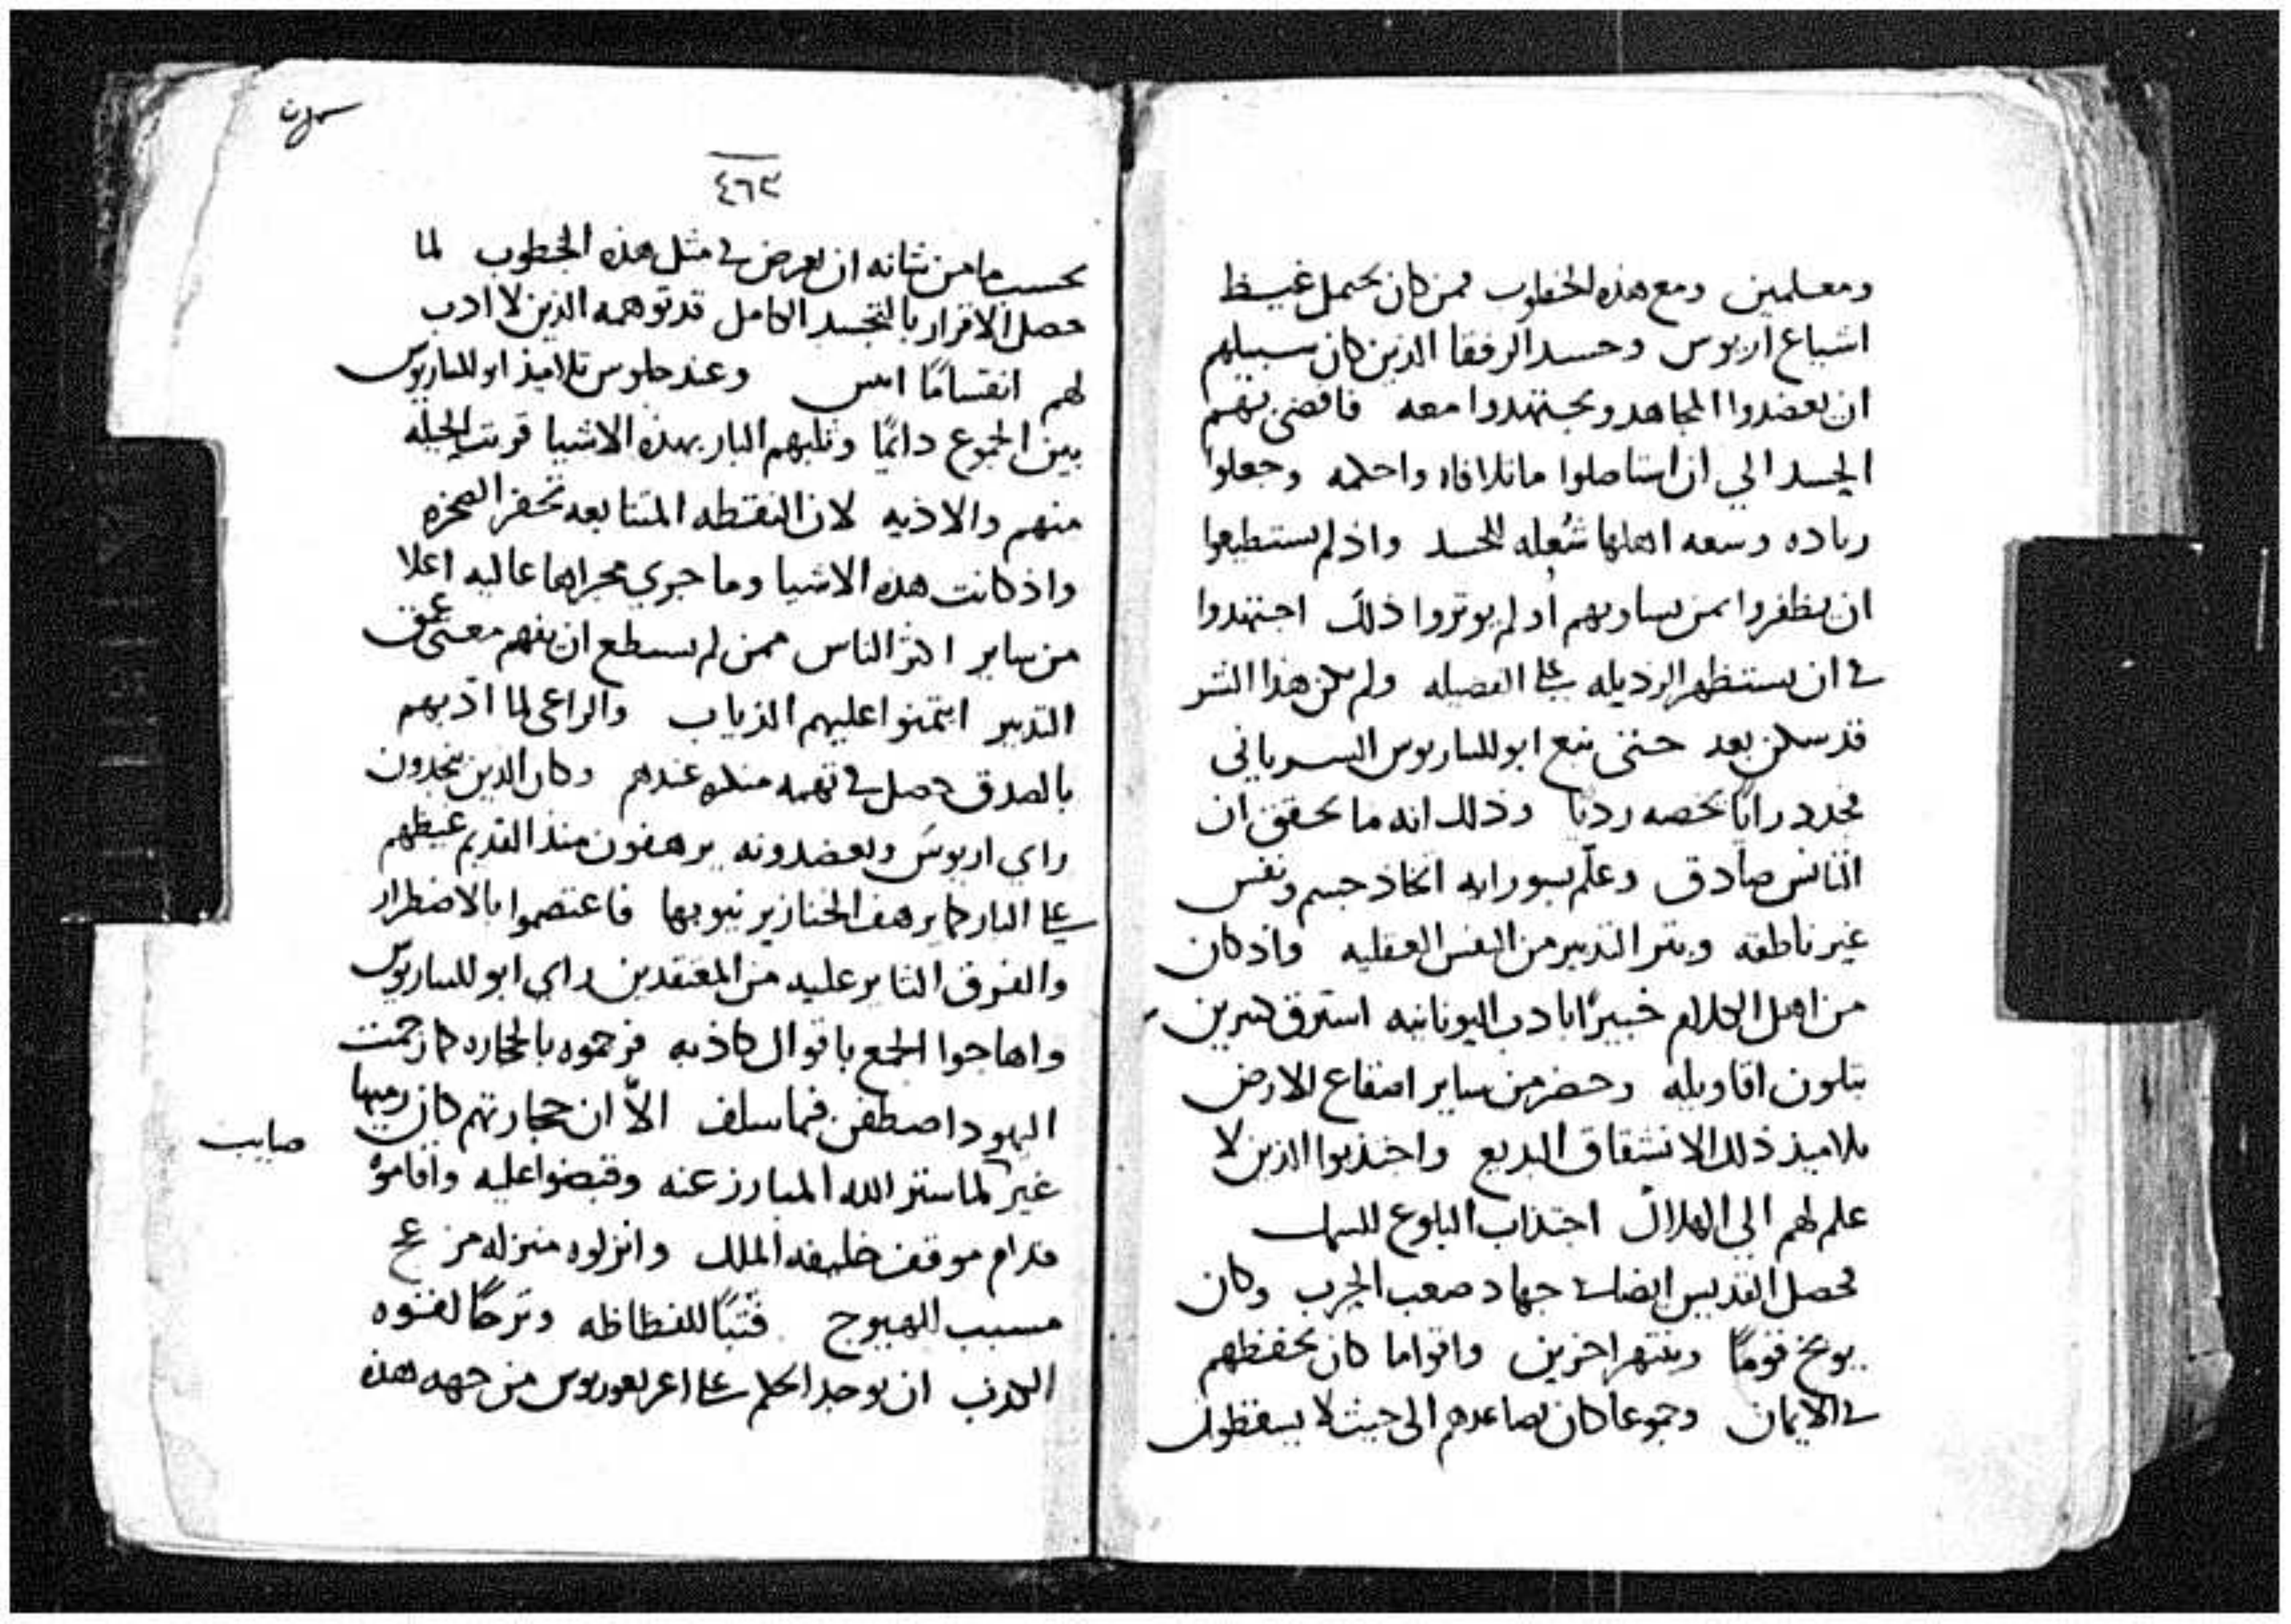 ومعلمين ومع هذه الخطوب فمن كان يحتمل غيظ
اشياع اريوس وحسد الرفقا الذين كان سبيلهم
ان يعضدوا المجاهد ويجتهدوا معه فافضى بهم
الحسد الي ان استاصلوا ما تلافاه واحكمه وجعلوا
رياده وسعه اهلها شُعله للحسد واذ لم يستطيعوا
ان يظفروا بمن يساويهم او لم يوتروا ذلك اجتهدوا
في ان يستظهر الرذيله على الفضيله ولم يكن هذا الشر
قد سكن بعد حتى نبع ابولليناريوس السرياني
مجدد رايًا يخصه رديًا وذلك انه ما يحقق ان
التانس صادق وعلّم بسو رايه اتخاذ جسم ونفس
غير ناطقه وبتر التدبير من النفس العقليه واذ كان
من اهل الكلام خبيرًا باداب اليونانيه استرق كثيرين
بتلون اقاويله وحضر من ساير اصقاع الارض
تلاميذ ذلك الانشقاق البديع واجتذبوا الذين لا
علم لهم الى الهلاك اجتذاب البلوع للسمك
فحصل القديس ايضا في جهاد صعب الحرب وكان
يوبخ قومًا وينتهر اخرين واقواما كان يحفظهم
في الايمان وجموعا كان يصاعدهم الى حيث لا يسقطون
٤٦٣
بحسب ما من شانه ان يعرض في مثل هذه الخطوب لما
حصل الاقرار بالتجسد الكامل قد توهمه الذين لا ادب
لهم انقسامًا وعند جلوس تلاميذ ابولليناريوس
بين الجموع دائمًا وثلبهم البار بهذه الاشيا قويت الحيله
منهم والاذيه لان النقطه المتتابعه تحفر الصخره
واذ كانت هذه الاشيا وما جرى مجراها عاليه اعلا
من ساير اكثر الناس ممن لم يستطع ان يفهم معنى عمق
التدبير ائتمنوا عليهم الذياب والراعى لما ادبهم
بالصدق حصل في تهمه منكره عندهم وكان الذين يمجدون
راي اريوس ويعضدونه يرهفون منذ القديم غيظهم
على البار كما يرهف الخنازير نيوبها فاعتصموا بالاضطرار
والفرق الثاير عليه من المعتقدين راي ابولليناريوس
واهاجوا الجمع باقوال كاذبه فرجموه بالحجاره كما رجمت
اليهود اصطفن فما سلف الاّ ان حجارتهم كان رميها
صايب
غير لما ستر الله المبارز عنه وقبضوا عليه واقاموه
قدام موقف خليفه الملك وانزلوه منزله من
مسبب الهيوج فتبًا للفظاظه وترحًا لقسوه
الكذب ان يوجد الحكم على اغريغوريوس من جهه هذه